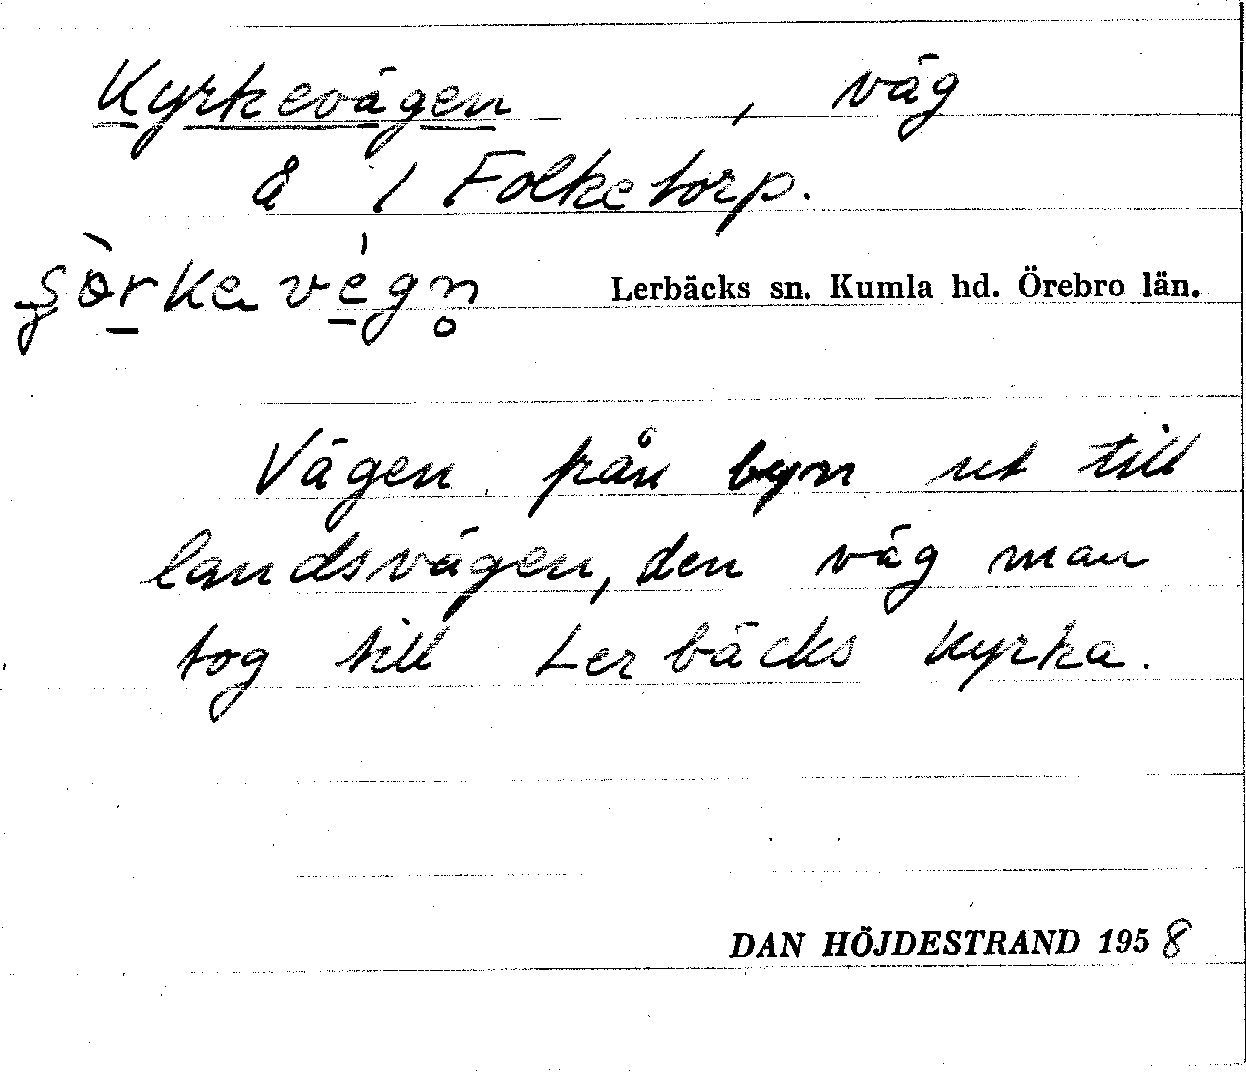 Kyrkevägen , väg
å 1 Folketorp.
şòrka végn̥ Lerbäcks sn. Kumla hd. Örebro län.
Vägen från byn ut till
landsvägen, den väg man
tog till Lerbäcks kyrka.
DAN HÖJDESTRAND 1958